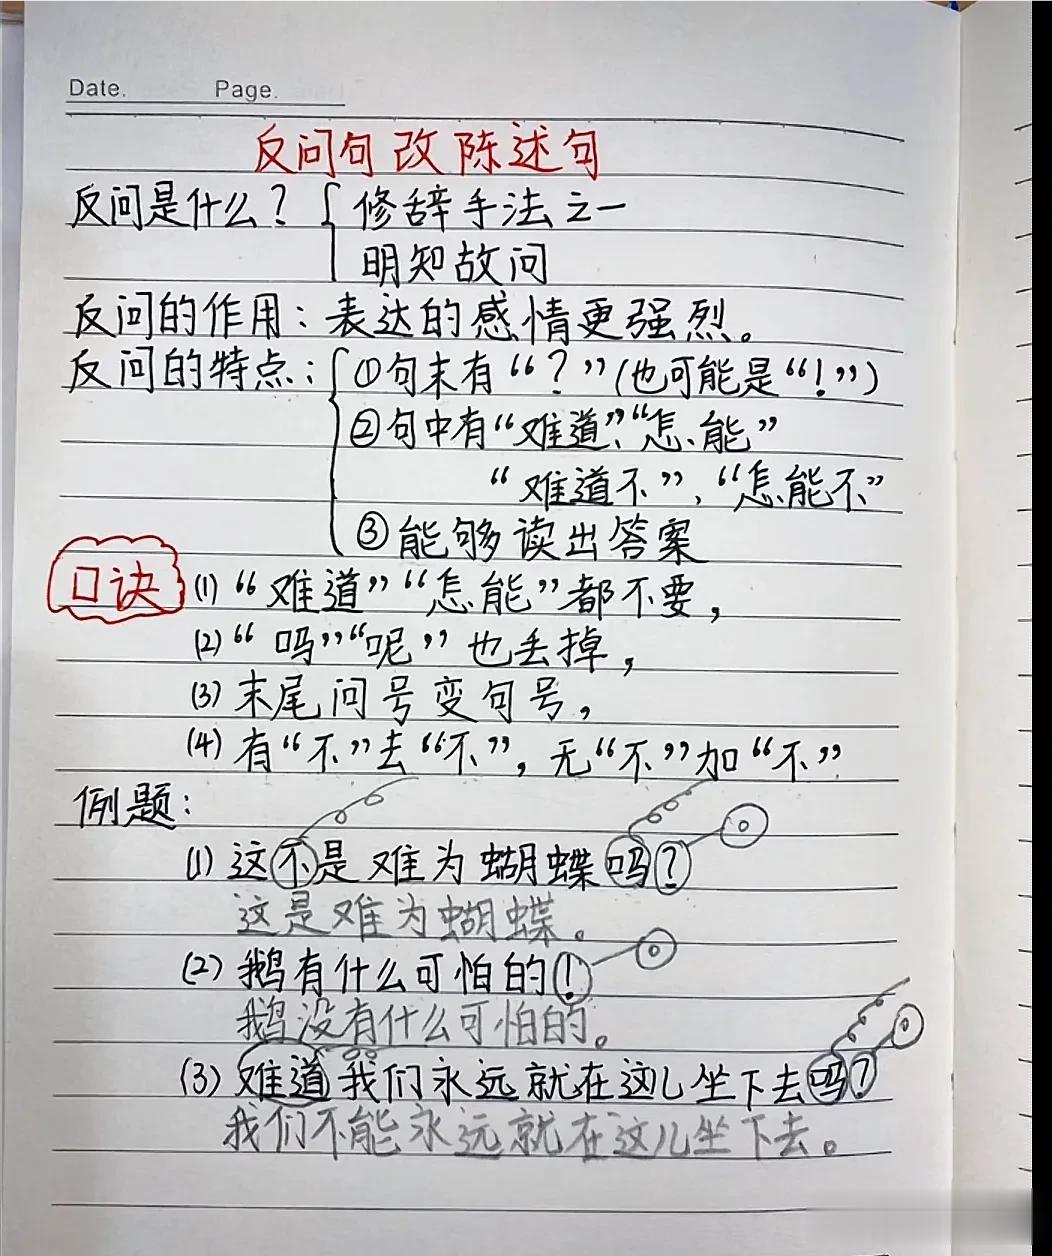 Date. Page.
反问句改陈述句
反问是什么？ 修辞手法之一
明知故问
反问的作用：表达的感情更强烈。
反问的特点： ①句末有“？”(也可能是“！”)
②句中有“难道”、“怎能”
“难道不”、“怎能不”
③能够读出答案
口诀 (1)“难道”“怎能”都不要，
(2)“吗”“呢”也丢掉，
(3)末尾问号变句号，
(4)有“不”去“不”，无“不”加“不”
例题：
(1)这不是难为蝴蝶吗？
这是难为蝴蝶。
(2)鹅有什么可怕的！
鹅没有什么可怕的。
(3)难道我们永远就在这儿坐下去吗？
我们不能永远就在这儿坐下去。